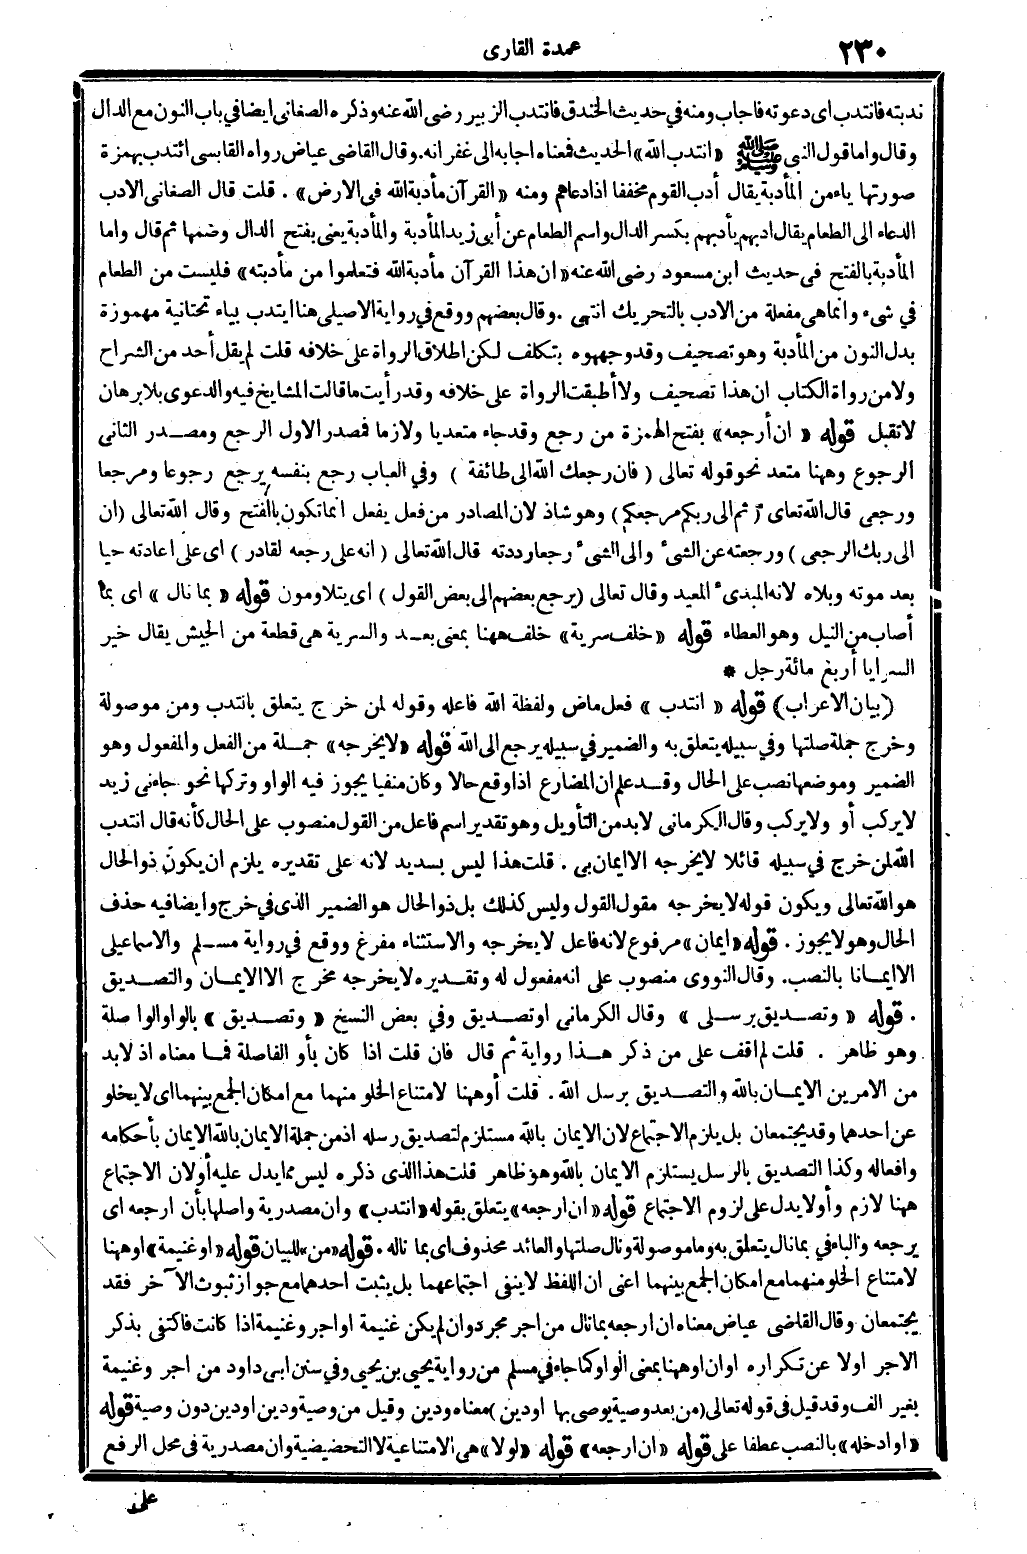 ٢٣٠
عمدة القارى
ندبته فانتدب اى دعوته فاجاب ومنه في حديث الخندق فانتدب الزبير رضى الله عنه وذكره الصغانى ايضا في باب النون مع الدال
وقال واما قول النبى ﷺ « انتدب الله» الحديث فمعناه اجابه الى غفرانه. وقال القاضى عياض رواه القابسى ائتدب بهمزة
صورتها ياء من المأدبة يقال أدب القوم مخففا اذا دعاهم ومنه « القرآن مأدبة الله فى الارض» . قلت قال الصغانى الادب
الدعاء الى الطعام يقال ادبهم يأدبهم بكسر الدال واسم الطعام عن أبى زيد المأدبة والمأدبة يعنى بفتح الدال وضمها ثم قال واما
المأدبة بالفتح فى حديث ابن مسعود رضى الله عنه « ان هذا القرآن مأدبة الله فتعلموا من مأدبته » فليست من الطعام
في شىء وانما هى مفعلة من الادب بالتحريك انتهى . وقال بعضهم ووقع في رواية الاصيلى هنا ايتدب بياء تحتانية مهموزة
بدل النون من المأدبة وهو تصحيف وقد وجهوه بتكلف لكن اطلاق الرواة على خلافه قلت لم يقل أحد من الشراح
ولا من رواة الكتاب ان هذا تصحيف ولا أطبقت الرواة على خلافه وقد رأيت ما قالت المشايخ فيه والدعوى بلا برهان
لا تقبل قوله « ان أرجعه» بفتح الهمزة من رجع وقد جاء متعديا ولازما فمصدر الاول الرجع ومصدر الثانى
الرجوع وههنا متعد نحو قوله تعالى ( فان رجعك الله الى طائفة ) وفي العباب رجع بنفسه يرجع رجوعا ومرجعا
ورجعى قال الله تعاى ( ثم الى ربكم مرجعكم ) وهو شاذ لان المصادر من فعل يفعل انما تكون بالفتح وقال الله تعالى ( ان
الى ربك الرجعى ) ورجعته عن الشىء والى الشىء رجعا رددته قال الله تعالى ( انه على رجعه لقادر ) اى على اعادته حيا
بعد موته وبلاه لانه المبدىء المعيد وقال تعالى (يرجع بعضهم الى بعض القول ) اى يتلاومون قوله « بما نال » اى بما
أصاب من النيل وهو العطاء قوله « خلف سرية» خلف ههنا بمعنى بعد والسرية هى قطعة من الجيش يقال خير
السرايا أربع مائة رجل *
(بيان الاعراب) قوله « انتدب » فعل ماض ولفظة الله فاعله وقوله لمن خرج يتعلق بانتدب ومن موصولة
وخرج جملة صلتها وفي سبيله يتعلق به والضمير في سبيله يرجع الى الله قوله «لا يخرجه» جملة من الفعل والمفعول وهو
الضمير وموضعها نصب على الحال وقد علم ان المضارع اذا وقع حالا وكان منفيا يجوز فيه الواو وتركها نحو جاءنى زيد
لا يركب أو ولا يركب وقال الكرمانى لا بد من التأويل وهو تقدير اسم فاعل من القول منصوب على الحال كأنه قال انتدب
الله لمن خرج في سبيله قائلا لا يخرجه الا ايمان بى . قلت هذا ليس بسديد لانه على تقديره يلزم ان يكون ذو الحال
هو الله تعالى ويكون قوله لا يخرجه مقول القول وليس كذلك بل ذو الحال هو الضمير الذى في خرج وايضا فيه حذف
الحال وهو لا يجوز . قوله «ايمان» مرفوع لانه فاعل لا يخرجه والاستثناء مفرغ ووقع في رواية مسلم والاسماعيلى
الا ايمانا بالنصب. وقال النووى منصوب على انه مفعول له وتقديره لا يخرجه مخرج الا الايمان والتصديق
. قوله « وتصديق برسلى » وقال الكرمانى او تصديق وفي بعض النسخ « وتصديق » بالواو الواصلة
وهو ظاهر . قلت لم اقف على من ذكر هذا رواية ثم قال فان قلت اذا كان بأو الفاصلة فما معناه اذ لا بد
من الامرين الايمان بالله والتصديق برسل الله . قلت أو ههنا لامتناع الخلو منهما مع امكان الجمع بينهما اى لا يخلو
عن احدهما وقد يجتمعان بل يلزم الاجتماع لان الايمان بالله مستلزم لتصديق رسله اذ من جملة الايمان بالله الايمان بأحكامه
وافعاله وكذا التصديق بالرسل يستلزم الايمان بالله وهو ظاهر قلت هذا الذى ذكره ليس مما يدل عليه أو لان الاجتماع
ههنا لازم وأو لا يدل على لزوم الاجتماع قوله « ان ارجعه» يتعلق بقوله « انتدب» وان مصدرية واصلها بأن ارجعه اى
يرجعه والباء في بما نال يتعلق به وما موصولة ونال صلتها والعائد محذوف اى بما ناله . قوله «من» للبيان قوله « او غنيمة» او ههنا
لامتناع الخلو منهما مع امكان الجمع بينهما اعنى ان اللفظ لا ينفى اجتماعهما بل يثبت احدهما مع جواز ثبوت الآخر فقد
يجتمعان وقال القاضى عياض معناه ان ارجعه بما نال من اجر مجرد وان لم يكن غنيمة او اجر وغنيمة اذا كانت فاكتفى بذكر
الاجر اولا عن تكراره او ان او ههنا بمعنى الواو كما جاء في مسلم من رواية يحيى بن يحيى وفي سنن ابى داود من اجر وغنيمة
بغير الف وقد قيل فى قوله تعالى (من بعد وصية يوصى بها او دين ) معناه ودين وقيل من وصية ودين او دين دون وصية قوله
« او ادخله» بالنصب عطفا على قوله « ان ارجعه» قوله «لولا» هى الامتناعية لا التحضيضية وان مصدرية فى محل الرفع
على